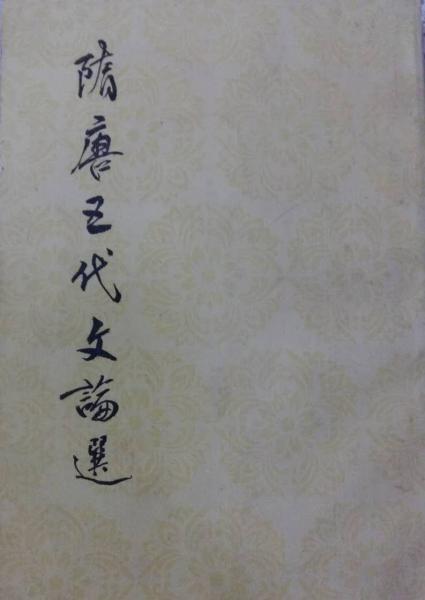 隋唐五代文論選